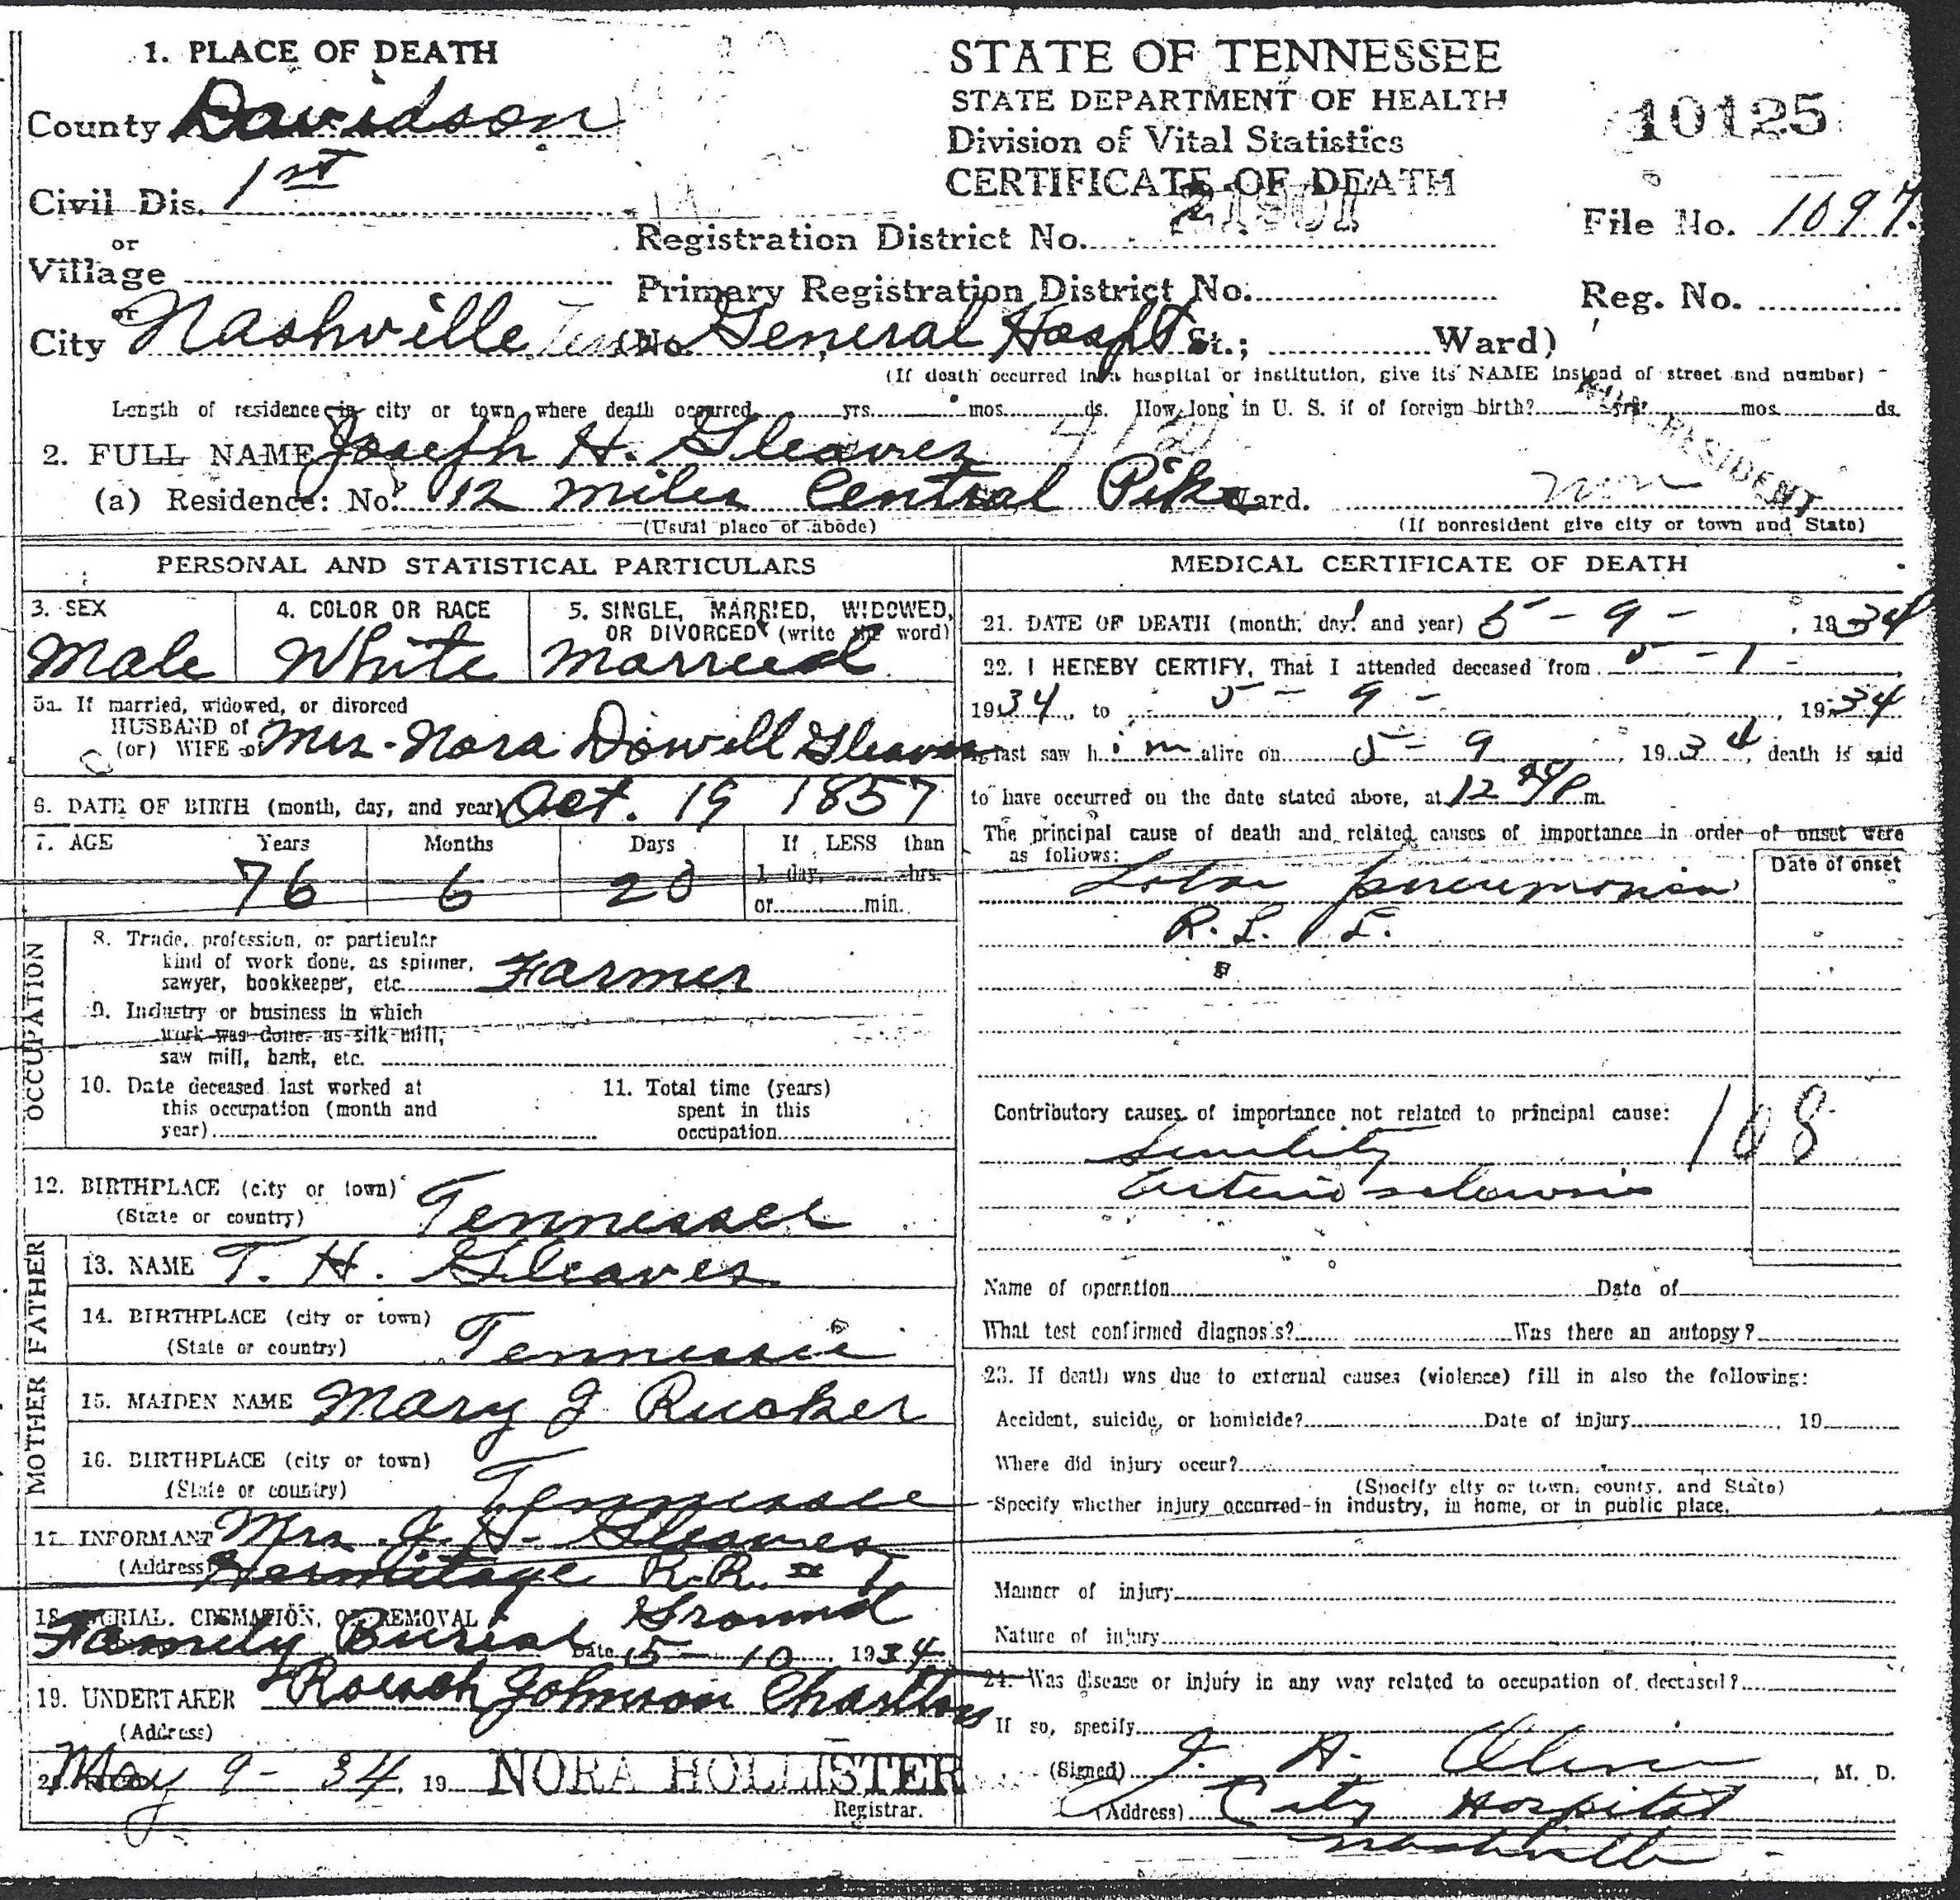 1. PLACE OF DEATH
County Davidson
Civil Dis. 1st
or
Village
or
City Nashville Tenn No. General Hospt St.; Ward)
STATE OF TENNESSEE
STATE DEPARTMENT OF HEALTH
Division of Vital Statistics
CERTIFICATE OF DEATH
10125
Registration District No. 21901
File No. 1097
Primary Registration District No.
Reg. No.
(If death occurred in a hospital or institution, give its NAME instead of street and number)
Length of residence in city or town where death occurred yrs. mos. ds. How long in U. S. if of foreign birth? yrs. mos. ds.
2. FULL NAME Joseph H. Gleaves
(a) Residence: No. 12 Miles Central Pike Ward. non
NON-RESIDENT
(Usual place of abode) (If nonresident give city or town and State)
PERSONAL AND STATISTICAL PARTICULARS
3. SEX Male
4. COLOR OR RACE White
5. SINGLE, MARRIED, WIDOWED, OR DIVORCED (write the word) Married
5a. If married, widowed, or divorced
HUSBAND of
(or) WIFE of Mrs. Nora Dowell Gleaves
6. DATE OF BIRTH (month, day, and year) Oct. 19 1857
7. AGE Years Months Days If LESS than
76 6 20 1 day, hrs.
or min.
OCCUPATION
8. Trade, profession, or particular
kind of work done, as spinner,
sawyer, bookkeeper, etc. Farmer
9. Industry or business in which
work was done, as silk mill,
saw mill, bank, etc.
10. Date deceased last worked at
this occupation (month and
year)
11. Total time (years)
spent in this
occupation
12. BIRTHPLACE (city or town)
(State or country) Tennessee
FATHER
13. NAME T. H. Gleaves
14. BIRTHPLACE (city or town)
(State or country) Tennessee
MOTHER
15. MAIDEN NAME Mary J Rucker
16. BIRTHPLACE (city or town)
(State or country) Tennessee
17. INFORMANT Mrs J. H. Gleaves
(Address) Hermitage R.R. #1
18. BURIAL, CREMATION, OR REMOVAL
Family Burial Ground Date 5-10, 1934
19. UNDERTAKER Roesch Johnson Charlton
(Address)
May 9-34, 19 NORA HOLLISTER
Registrar.
MEDICAL CERTIFICATE OF DEATH
21. DATE OF DEATH (month, day, and year) 5-9-, 1934
22. I HEREBY CERTIFY, That I attended deceased from 5-1-
1934, to 5-9-, 1934
I last saw him alive on 5-9, 1934, death is said
to have occurred on the date stated above, at 12 P m.
The principal cause of death and related causes of importance in order of onset were
as follows: Date of onset
Lobar pneumonia
R. L. L.
Contributory causes of importance not related to principal cause:
108
Senility
Arterio sclerosis
Name of operation Date of
What test confirmed diagnosis? Was there an autopsy?
23. If death was due to external causes (violence) fill in also the following:
Accident, suicide, or homicide? Date of injury, 19
Where did injury occur?
(Specify city or town, county, and State)
Specify whether injury occurred in industry, in home, or in public place.
Manner of injury
Nature of injury
24. Was disease or injury in any way related to occupation of deceased?
If so, specify
(Signed) J. A. M. D.
(Address) City Hospital
Nashville